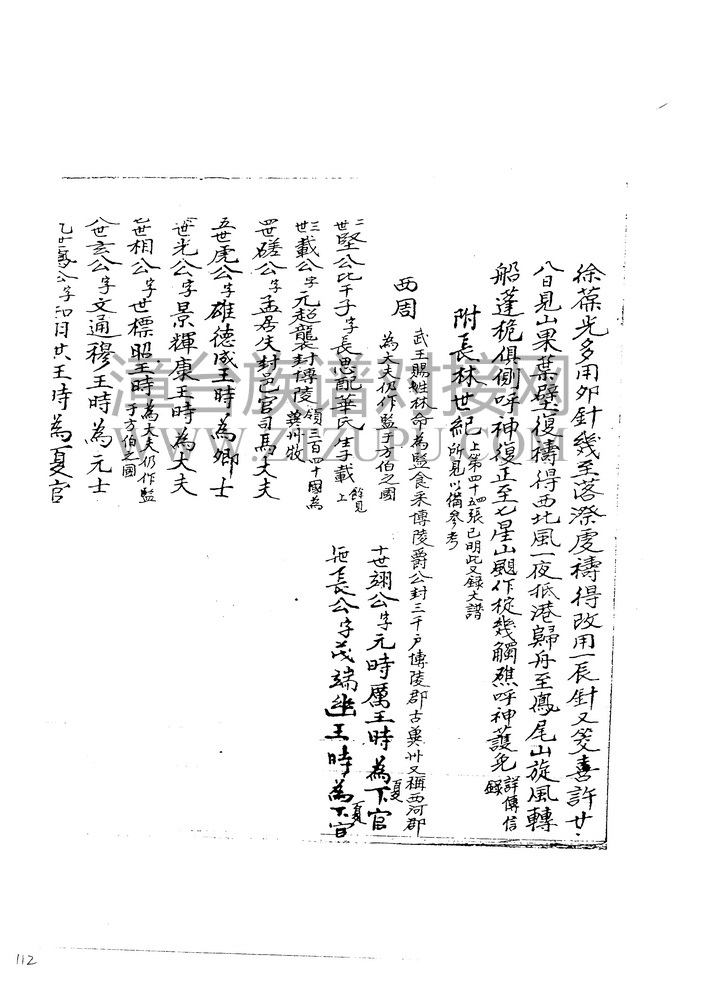 徐葆光多用卯針幾至落漈虔禱得改用一長針又筊喜許廿
八日見山果葉壁復禱得西北風一夜抵港歸舟至鳳尾山旋風轉
船蓬桅俱側呼神復正至七星山颶作椗幾觸礁呼神護免詳傳信錄
附長林世紀上第四十四張已明此又錄大譜所見以備參考
西周武王賜姓林命為監食采博陵爵公封三千戶博陵郡古冀州又稱西河郡為大夫仍作監于方伯之國
二世堅公比干子字長思配華氏生子載餘見上
三世載公字元超襲封博陵領三百四十國為冀州牧
四世磋公字孟居失封邑官司馬大夫
五世虎公字雄德成王時為卿士
六世光公字景輝康王時為大夫
七世相公字世標昭王時為大夫仍作監于方伯之國
八世玄公字文通穆王時為元士
王時為夏官
十世翊公字元時厲王時為下夏官
長公字茂端幽王時為下夏官
漳台族谱对接网
WWW.ZTZUPU.COM
112